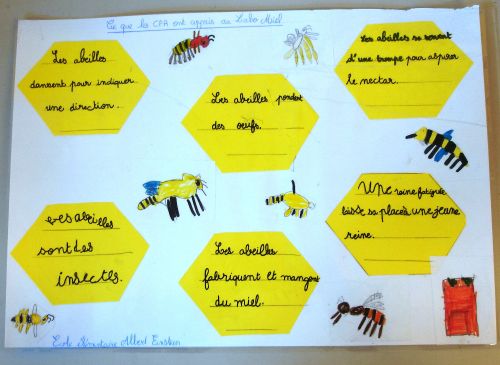 Ce que les CPA ont appris au Labo Miel
Les abeilles
dansent pour indiquer
une direction.
Les abeilles pondent
des œufs.
Les abeilles se servent
d'une trompe pour aspirer
le nectar.
Les abeilles
sont des
insectes.
Les abeilles
fabriquent et mangent
du miel.
Une reine fatiguée
laisse sa place à une jeune
reine.
Ecole élémentaire Albert Einstein